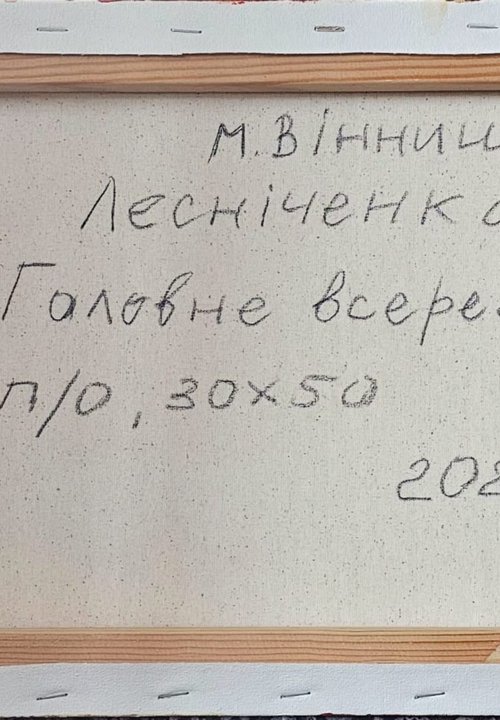 м. Вінниц
Леснiченко
Головне всере
п/о, 30х50
202